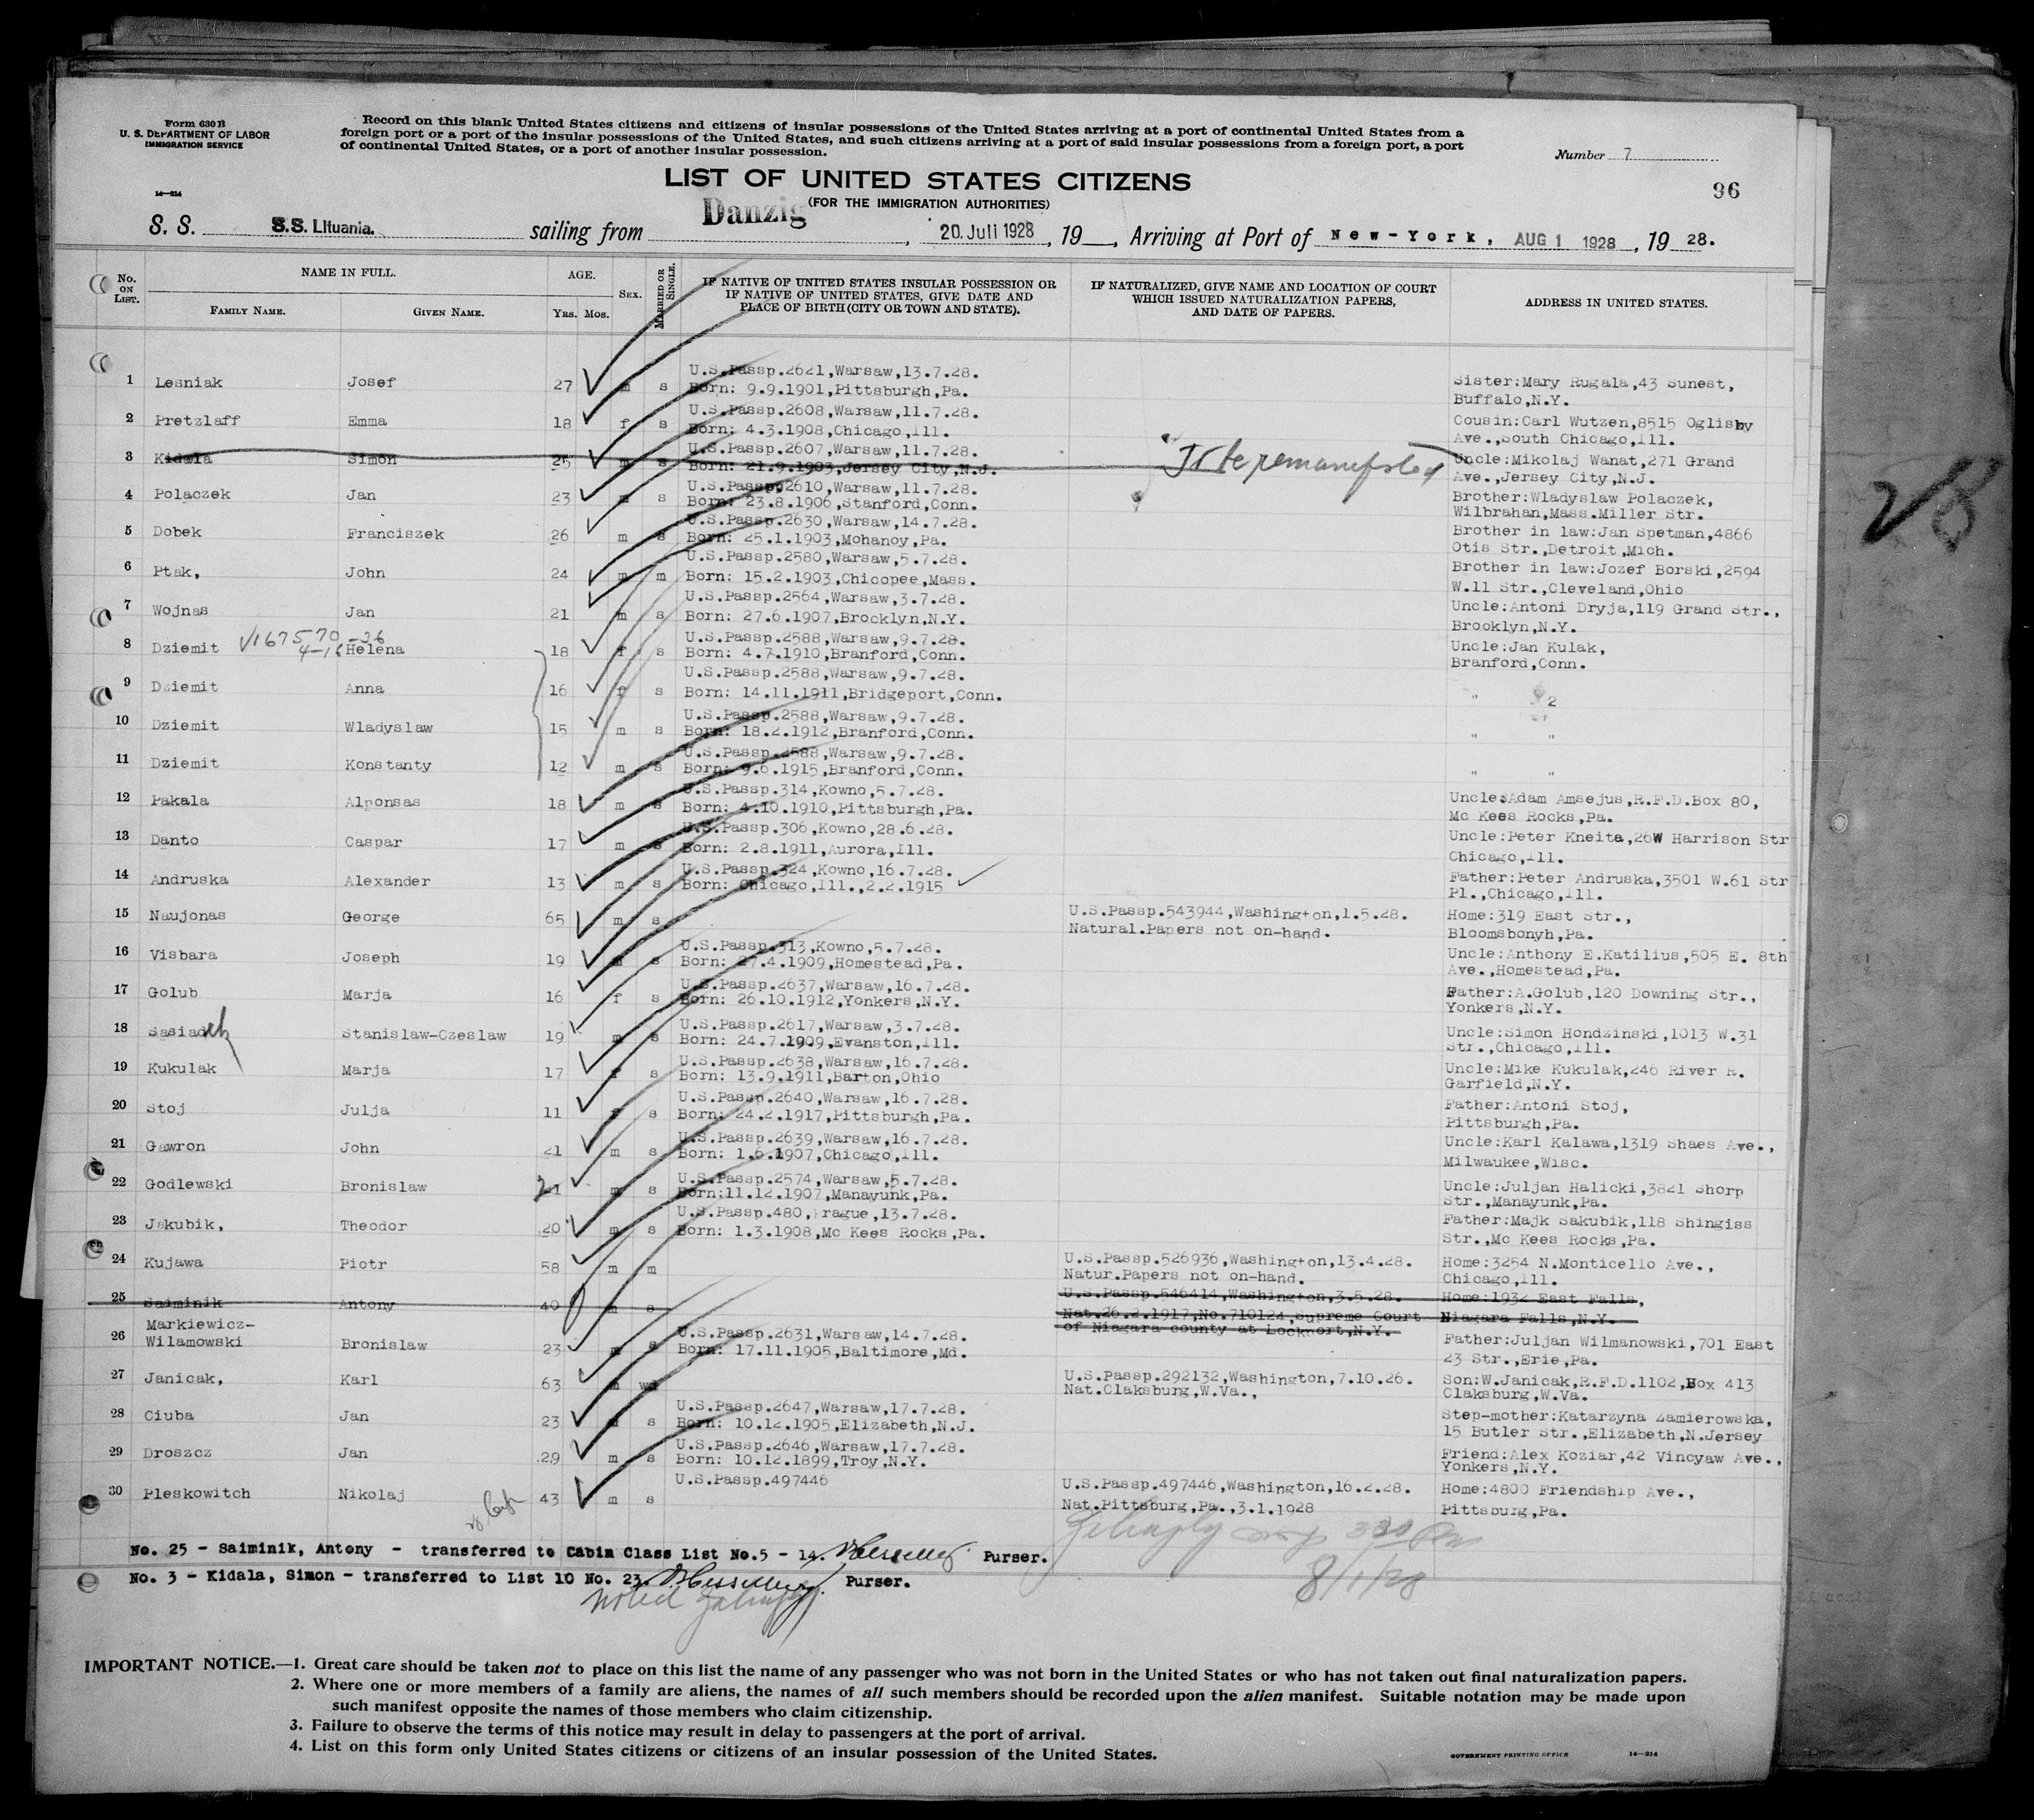 Form 630 B
U. S. DEPARTMENT OF LABOR
IMMIGRATION SERVICE
14—214
Record on this blank United States citizens and citizens of insular possessions of the United States arriving at a port of continental United States from a
foreign port or a port of the insular possessions of the United States, and such citizens arriving at a port of said insular possessions from a foreign port, a port
of continental United States, or a port of another insular possession.
Number 7
96
LIST OF UNITED STATES CITIZENS
(FOR THE IMMIGRATION AUTHORITIES)
S. S. S.S. Lituania. sailing from Danzig, 20. Juli 1928, 19__, Arriving at Port of New-York, AUG 1 1928, 19 28.
No. ON LIST.
NAME IN FULL.
FAMILY NAME.
GIVEN NAME.
AGE.
YRS. MOS.
SEX.
MARRIED OR SINGLE.
IF NATIVE OF UNITED STATES INSULAR POSSESSION OR
IF NATIVE OF UNITED STATES, GIVE DATE AND
PLACE OF BIRTH (CITY OR TOWN AND STATE).
IF NATURALIZED, GIVE NAME AND LOCATION OF COURT
WHICH ISSUED NATURALIZATION PAPERS,
AND DATE OF PAPERS.
ADDRESS IN UNITED STATES.
1 Lesniak Josef 27 m s U.S.Passp.2621,Warsaw,13.7.28.
Born: 9.9.1901,Pittsburgh,Pa.
Sister:Mary Rugala,43 Sunest,
Buffalo,N.Y.
2 Pretzlaff Emma 18 f s U.S.Passp.2608,Warsaw,11.7.28.
Born: 4.3.1908,Chicago,Ill.
Cousin:Carl Wutzen,8515 Oglisby
Ave.,South Chicago,Ill.
3 Kidala Simon 25 m s U.S.Passp.2607,Warsaw,11.7.28.
Born: 21.9.1903,Jersey City,N.J.
Uncle:Mikolaj Wanat,271 Grand
Ave.,Jersey City,N.J.
4 Polaczek Jan 23 m s U.S.Passp.2610,Warsaw,11.7.28.
Born: 23.8.1906,Stanford,Conn.
Brother:Wladyslaw Polaczek,
Wilbrahan,Mass.Miller Str.
5 Dobek Franciszek 26 m s U.S.Passp.2630,Warsaw,14.7.28.
Born: 25.1.1903,Mohanoy,Pa.
Brother in law:Jan Spetman,4866
Otis Str.,Detroit,Mich.
6 Ptak, John 24 m m U.S.Passp.2580,Warsaw,5.7.28.
Born: 15.2.1903,Chicopee,Mass.
Brother in law:Jozef Borski,2594
W.11 Str.,Cleveland,Ohio
7 Wojnas Jan 21 m s U.S.Passp.2564,Warsaw,3.7.28.
Born: 27.6.1907,Brocklyn,N.Y.
Uncle:Antoni Dryja,119 Grand Str.,
Brooklyn,N.Y.
8 Dziemit Helena 18 f s U.S.Passp.2588,Warsaw,9.7.28.
Born: 4.7.1910,Branford,Conn.
Uncle:Jan Kulak,
Branford,Conn.
9 Dziemit Anna 16 f s U.S.Passp.2588,Warsaw,9.7.28.
Born: 14.11.1911,Bridgeport,Conn.
" 2
10 Dziemit Wladyslaw 15 m s U.S.Passp.2588,Warsaw,9.7.28.
Born: 18.2.1912,Branford,Conn.
" "
11 Dziemit Konstanty 12 m s U.S.Passp.2588,Warsaw,9.7.28.
Born: 9.6.1915,Branford,Conn.
" "
12 Pakala Alponsas 18 m s U.S.Passp.314,Kowno,5.7.28.
Born: 4.10.1910,Pittsburgh,Pa.
Uncle:Adam Amsejus,R.F.D.Box 80,
Mc Kees Rocks,Pa.
13 Danto Caspar 17 m s U.S.Passp.306,Kowno,28.6.28.
Born: 2.8.1911,Aurora,Ill.
Uncle:Peter Kneita,26W Harrison Str
Chicago,Ill.
14 Andruska Alexander 13 m s U.S.Passp.324,Kowno,16.7.28.
Born: Chicago,Ill.,2.2.1915
Father:Peter Andruska,3501 W.61 Str
Pl.,Chicago,Ill.
15 Naujonas George 65 m s U.S.Passp.543944,Washington,1.5.28.
Natural.Papers not on-hand.
Home:319 East Str.,
Bloomsbonyh,Pa.
16 Visbara Joseph 19 m s U.S.Passp.313,Kowno,5.7.28.
Born: 27.4.1909,Homestead,Pa.
Uncle:Anthony E.Katilius,505 E. 8th
Ave.,Homestead,Pa.
17 Golub Marja 16 f s U.S.Passp.2637,Warsaw,16.7.28.
Born: 26.10.1912,Yonkers,N.Y.
Father:A.Golub,120 Downing Str.,
Yonkers,N.Y.
18 Sasiadek Stanislaw-Czeslaw 19 m s U.S.Passp.2617,Warsaw,3.7.28.
Born: 24.7.1909,Evanston,Ill.
Uncle:Simon Hondzinski,1013 W.31
Str.,Chicago,Ill.
19 Kukulak Marja 17 f s U.S.Passp.2638,Warsaw,16.7.28.
Born: 13.9.1911,Barton,Ohio
Uncle:Mike Kukulak,246 River R.
Garfield,N.Y.
20 Stoj Julja 11 f s U.S.Passp.2640,Warsaw,16.7.28.
Born: 24.2.1917,Pittsburgh,Pa.
Father:Antoni Stoj,
Pittsburgh,Pa.
21 Gawron John 21 m s U.S.Passp.2639,Warsaw,16.7.28.
Born: 1.6.1907,Chicago,Ill.
Uncle:Karl Kalawa,1319 Shaes Ave.,
Milwaukee,Wisc.
22 Godlewski Bronislaw 21 m s U.S.Passp.2574,Warsaw,5.7.28.
Born:11.12.1907,Manayunk,Pa.
Uncle:Juljan Halicki,3821 Shorp
Str.,Manayunk,Pa.
23 Jakubik, Theodor 20 m s U.S.Passp.480,Prague,13.7.28.
Born: 1.3.1908,Mc Kees Rocks,Pa.
Father:Majk Sakubik,118 Shingiss
Str.,Mc Kees Rocks,Pa.
24 Kujawa Piotr 58 m m U.S.Passp.526936,Washington,13.4.28.
Natur.Papers not on-hand.
Home:3254 N.Monticello Ave.,
Chicago,Ill.
25 Saiminik Antony 40 m s U.S.Passp.546414,Washington,3.5.28.
Nat.26.2.1917,No.710124,Supreme Court
of Niagara county at Lockport,N.Y.
Home:1932 East Falls,
Niagara Falls,N.Y.
26 Markiewicz-
Wilamowski Bronislaw 23 m s U.S.Passp.2631,Warsaw,14.7.28.
Born: 17.11.1905,Baltimore,Md.
Father:Juljan Wilmanowski,701 East
23 Str.,Erie,Pa.
27 Janicak, Karl 63 m wd U.S.Passp.292132,Washington,7.10.26.
Nat.Claksburg,W.Va.,
Son:W.Janicak,R.F.D.1102,Box 413
Claksburg,W.Va.
28 Ciuba Jan 23 m s U.S.Passp.2647,Warsaw,17.7.28.
Born: 10.12.1905,Elizabeth,N.J.
Step-mother:Katarzyna Zamierowska,
15 Butler Str.,Elizabeth,N.Jersey
29 Droszcz Jan 29 m s U.S.Passp.2646,Warsaw,17.7.28.
Born: 10.12.1899,Troy,N.Y.
Friend:Alex Koziar,42 Vincyaw Ave.,
Yonkers,N.Y.
30 Pleskowitch Nikolaj 43 m s U.S.Passp.497446
U.S.Passp.497446,Washington,16.2.28.
Nat.Pittsburg,Pa.,3.1.1928
Home:4800 Friendship Ave.,
Pittsburg,Pa.
No. 25 - Saiminik, Antony - transferred to Cabin Class List No.5 - 14. Purser.
No. 3 - Kidala, Simon - transferred to List 10 No. 23. Purser.
8/1/28
28
IMPORTANT NOTICE.—1. Great care should be taken not to place on this list the name of any passenger who was not born in the United States or who has not taken out final naturalization papers.
2. Where one or more members of a family are aliens, the names of all such members should be recorded upon the alien manifest. Suitable notation may be made upon
such manifest opposite the names of those members who claim citizenship.
3. Failure to observe the terms of this notice may result in delay to passengers at the port of arrival.
4. List on this form only United States citizens or citizens of an insular possession of the United States.
GOVERNMENT PRINTING OFFICE 14—214